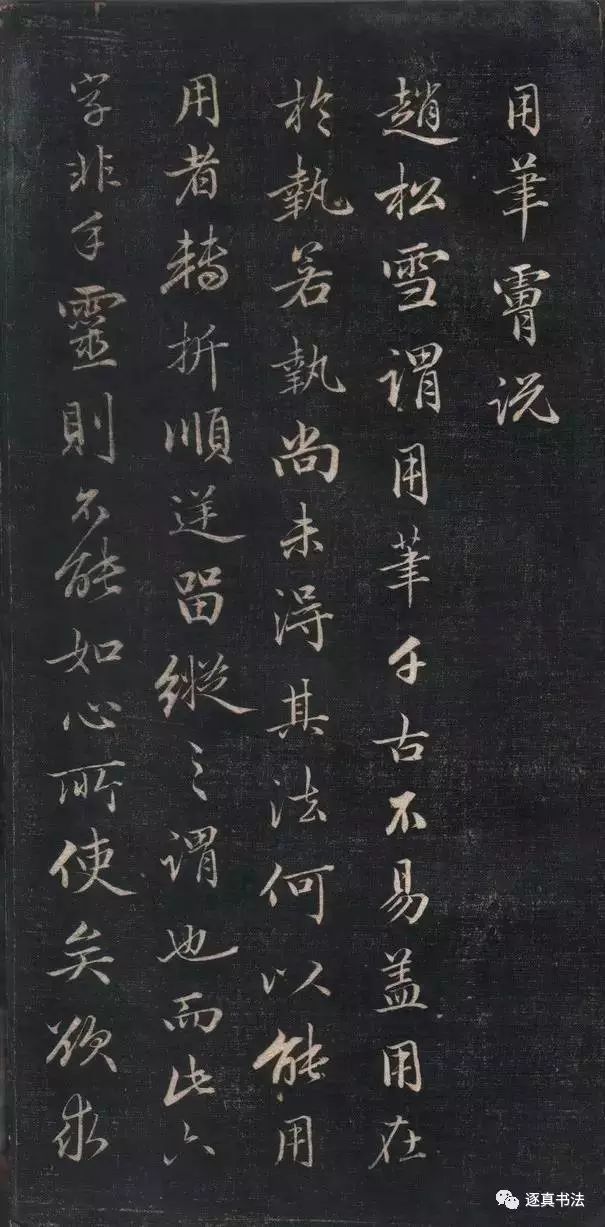 用筆實说
趙松雪謂用筆千古不易盖用在
於執若執尚未得其法何以能用
用者轉折順逆留縱之謂也而此六
字非手靈則不能如心所使矣欲求
逐真书法